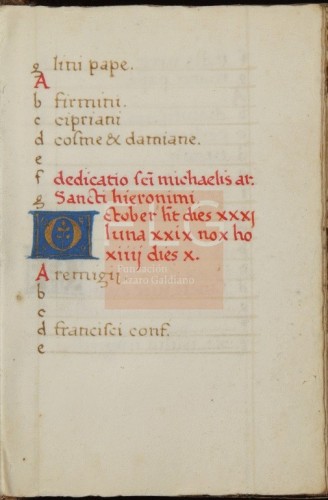 g lini pape.
A
b firmini.
c cipriani
d cosme & damiane.
e
f dedicatio sci michaelis ar.
g Sancti hieronimi
October ht dies xxxj
luna xxix nox ho
xiiij dies x.
A remigij
b
c
d francisci conf.
e
FLG
Fundación
Lázaro Galdiano